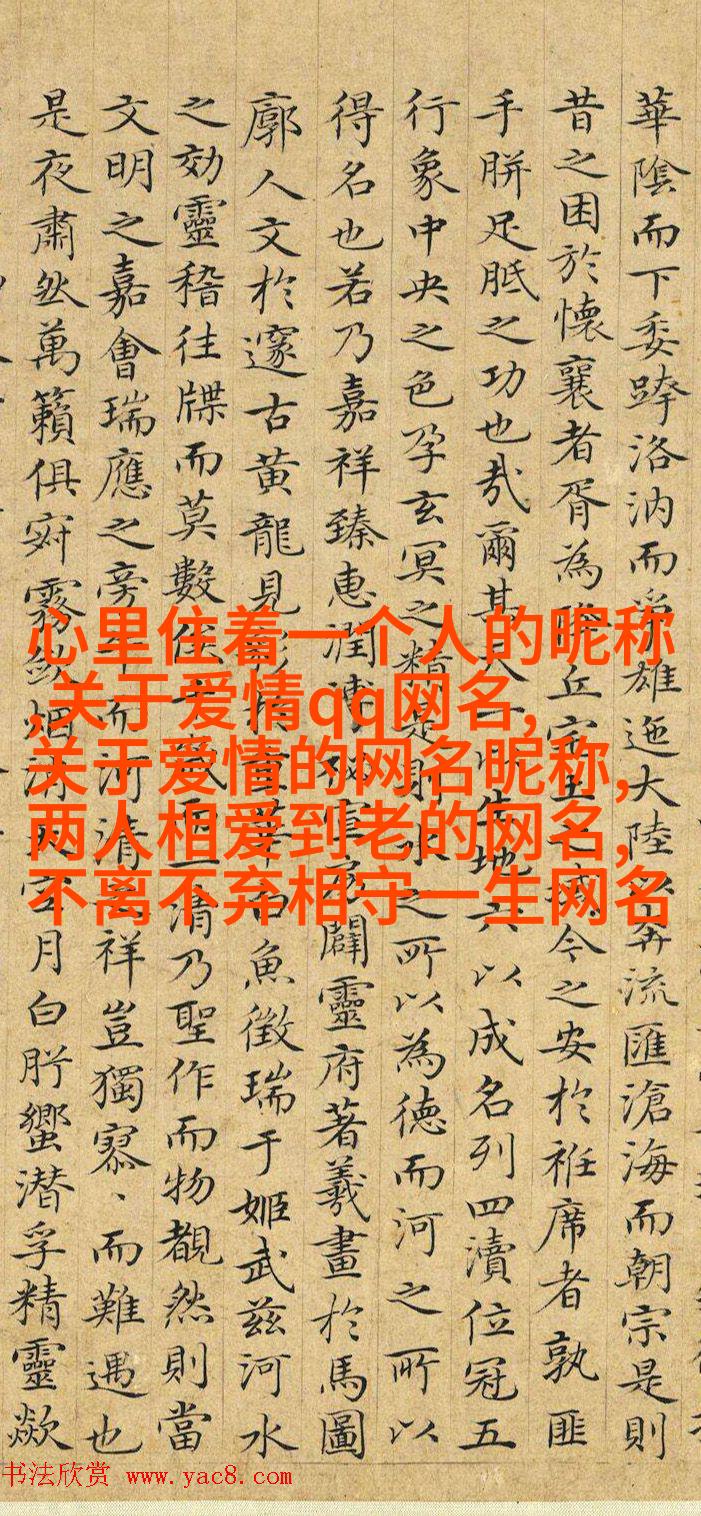 華陰而下委跡洛汭而
雄迤大陸以奔流匯滄海而朝宗是則
昔之困於懷襄者胥為
丘
今之安於袵席者孰匪
手胼足胝之功也哉爾其
地六以成名列四瀆位冠五
行象中央之色孕玄冥之精是
之所以為德而河之所以
得名也若乃嘉祥臻惠潤
闢靈府著羲畫於馬圖
廓人文於邃古黃龍見
白魚徵瑞于姬武茲河水
之効靈稽往牒而莫數
清乃聖作而物覩然則當
文明之嘉會瑞應之旁
而河清
祥豈獨寡、而難遇也
是夜肅然萬籟俱寂霧
空月白肸蠁潜孚精靈歘
心里住着一个人的昵称
,关于爱情qq网名,
关于爱情的网名昵称,
两人相爱到老的网名,
不离不弃相守一生网名
书法欣赏 www.yac8.com